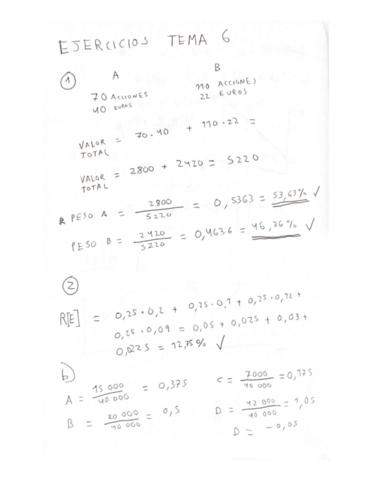 EJERCICIOS TEMA 6
① A B
70 ACCIONES 110 ACCIONES
40 EUROS 22 EUROS
VALOR TOTAL = 70·40 + 110·22 =
VALOR TOTAL = 2800 + 2420 = 5220
PESO A = 2800 / 5220 = 0,5363 = 53,63% ✓
PESO B = 2420 / 5220 = 0,4636 = 46,36% ✓
②
R[E] = 0,25·0,2 + 0,25·0,1 + 0,25·0,12 +
0,25·0,09 = 0,05 + 0,025 + 0,03 +
0,0225 = 12,75% ✓
b)
A = 15 000 / 40 000 = 0,375 C = 7000 / 40 000 = 0,175
B = 20 000 / 40 000 = 0,5 D = 42 000 / 40 000 = 1,05
D = -0,05